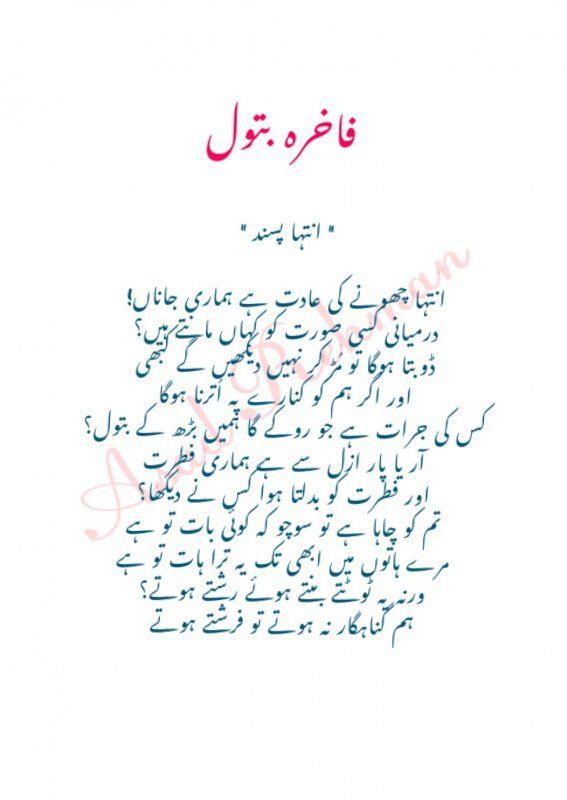 فاخرہ بتول
" انتہا پسند "
انتہا چھونے کی عادت ہے ہماری جاناں!
درمیانی کسی صورت کو کہاں مانتے ہیں؟
ڈوبتا ہوگا تو مڑ کر نہیں دیکھیں گے کبھی
اور اگر ہم کو کنارے پہ اُترنا ہوگا
کس کی جرات ہے جو روکے گا ہمیں بڑھ کے بتول؟
آر یا پار ازل سے ہے ہماری فطرت
اور فطرت کو بدلتا ہوا کس نے دیکھا؟
تم کو چاہا ہے تو سوچو کہ کوئی بات تو ہے
مرے ہاتوں میں ابھی تک یہ ترا ہات تو ہے
ورنہ یہ ٹوٹتے بنتے ہوئے رشتے ہوتے؟
ہم گناہگار نہ ہوتے تو فرشتے ہوتے
Asad Rehman